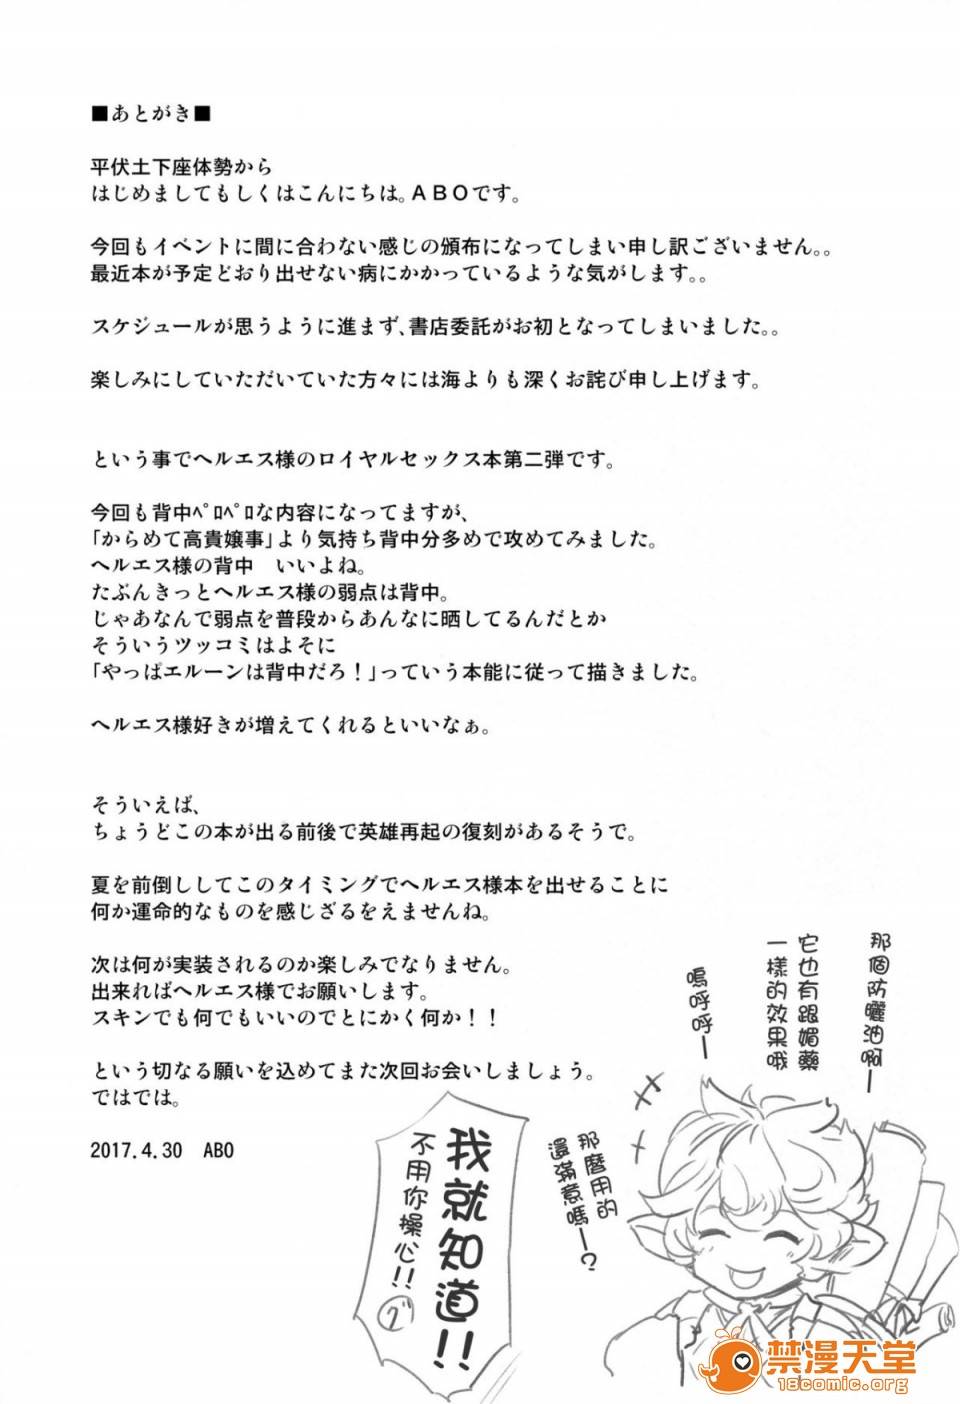 ■あとがき■
平伏土下座体勢から
はじめましてもしくはこんにちは。ABOです。
今回もイベントに間に合わない感じの頒布になってしまい申し訳ございません。。
最近本が予定どおり出せない病にかかっているような気がします。。
スケジュールが思うように進まず、書店委託がお初となってしまいました。。
楽しみにしていただいていた方々には海よりも深くお詫び申し上げます。
という事でヘルエス様のロイヤルセックス本第二弾です。
今回も背中ﾍﾟﾛﾍﾟﾛな内容になってますが、
「からめて高貴嬢事」より気持ち背中分多めで攻めてみました。
ヘルエス様の背中　いいよね。
たぶんきっとヘルエス様の弱点は背中。
じゃあなんで弱点を普段からあんなに晒してるんだとか
そういうツッコミはよそに
「やっぱエルーンは背中だろ！」っていう本能に従って描きました。
ヘルエス様好きが増えてくれるといいなぁ。
そういえば、
ちょうどこの本が出る前後で英雄再起の復刻があるそうで。
夏を前倒ししてこのタイミングでヘルエス様本を出せることに
何か運命的なものを感じざるをえませんね。
次は何が実装されるのか楽しみでなりません。
出来ればヘルエス様でお願いします。
スキンでも何でもいいのでとにかく何か！！
という切なる願いを込めてまた次回お会いしましょう。
ではでは。
2017.4.30　ABO
那個防曬油啊ー
它也有跟媚藥
一樣的效果哦
嗚呼呼ー
那麼用的
還滿意嗎ー?
我就知道!!
不用你操心!!
禁漫天堂
18comic.org